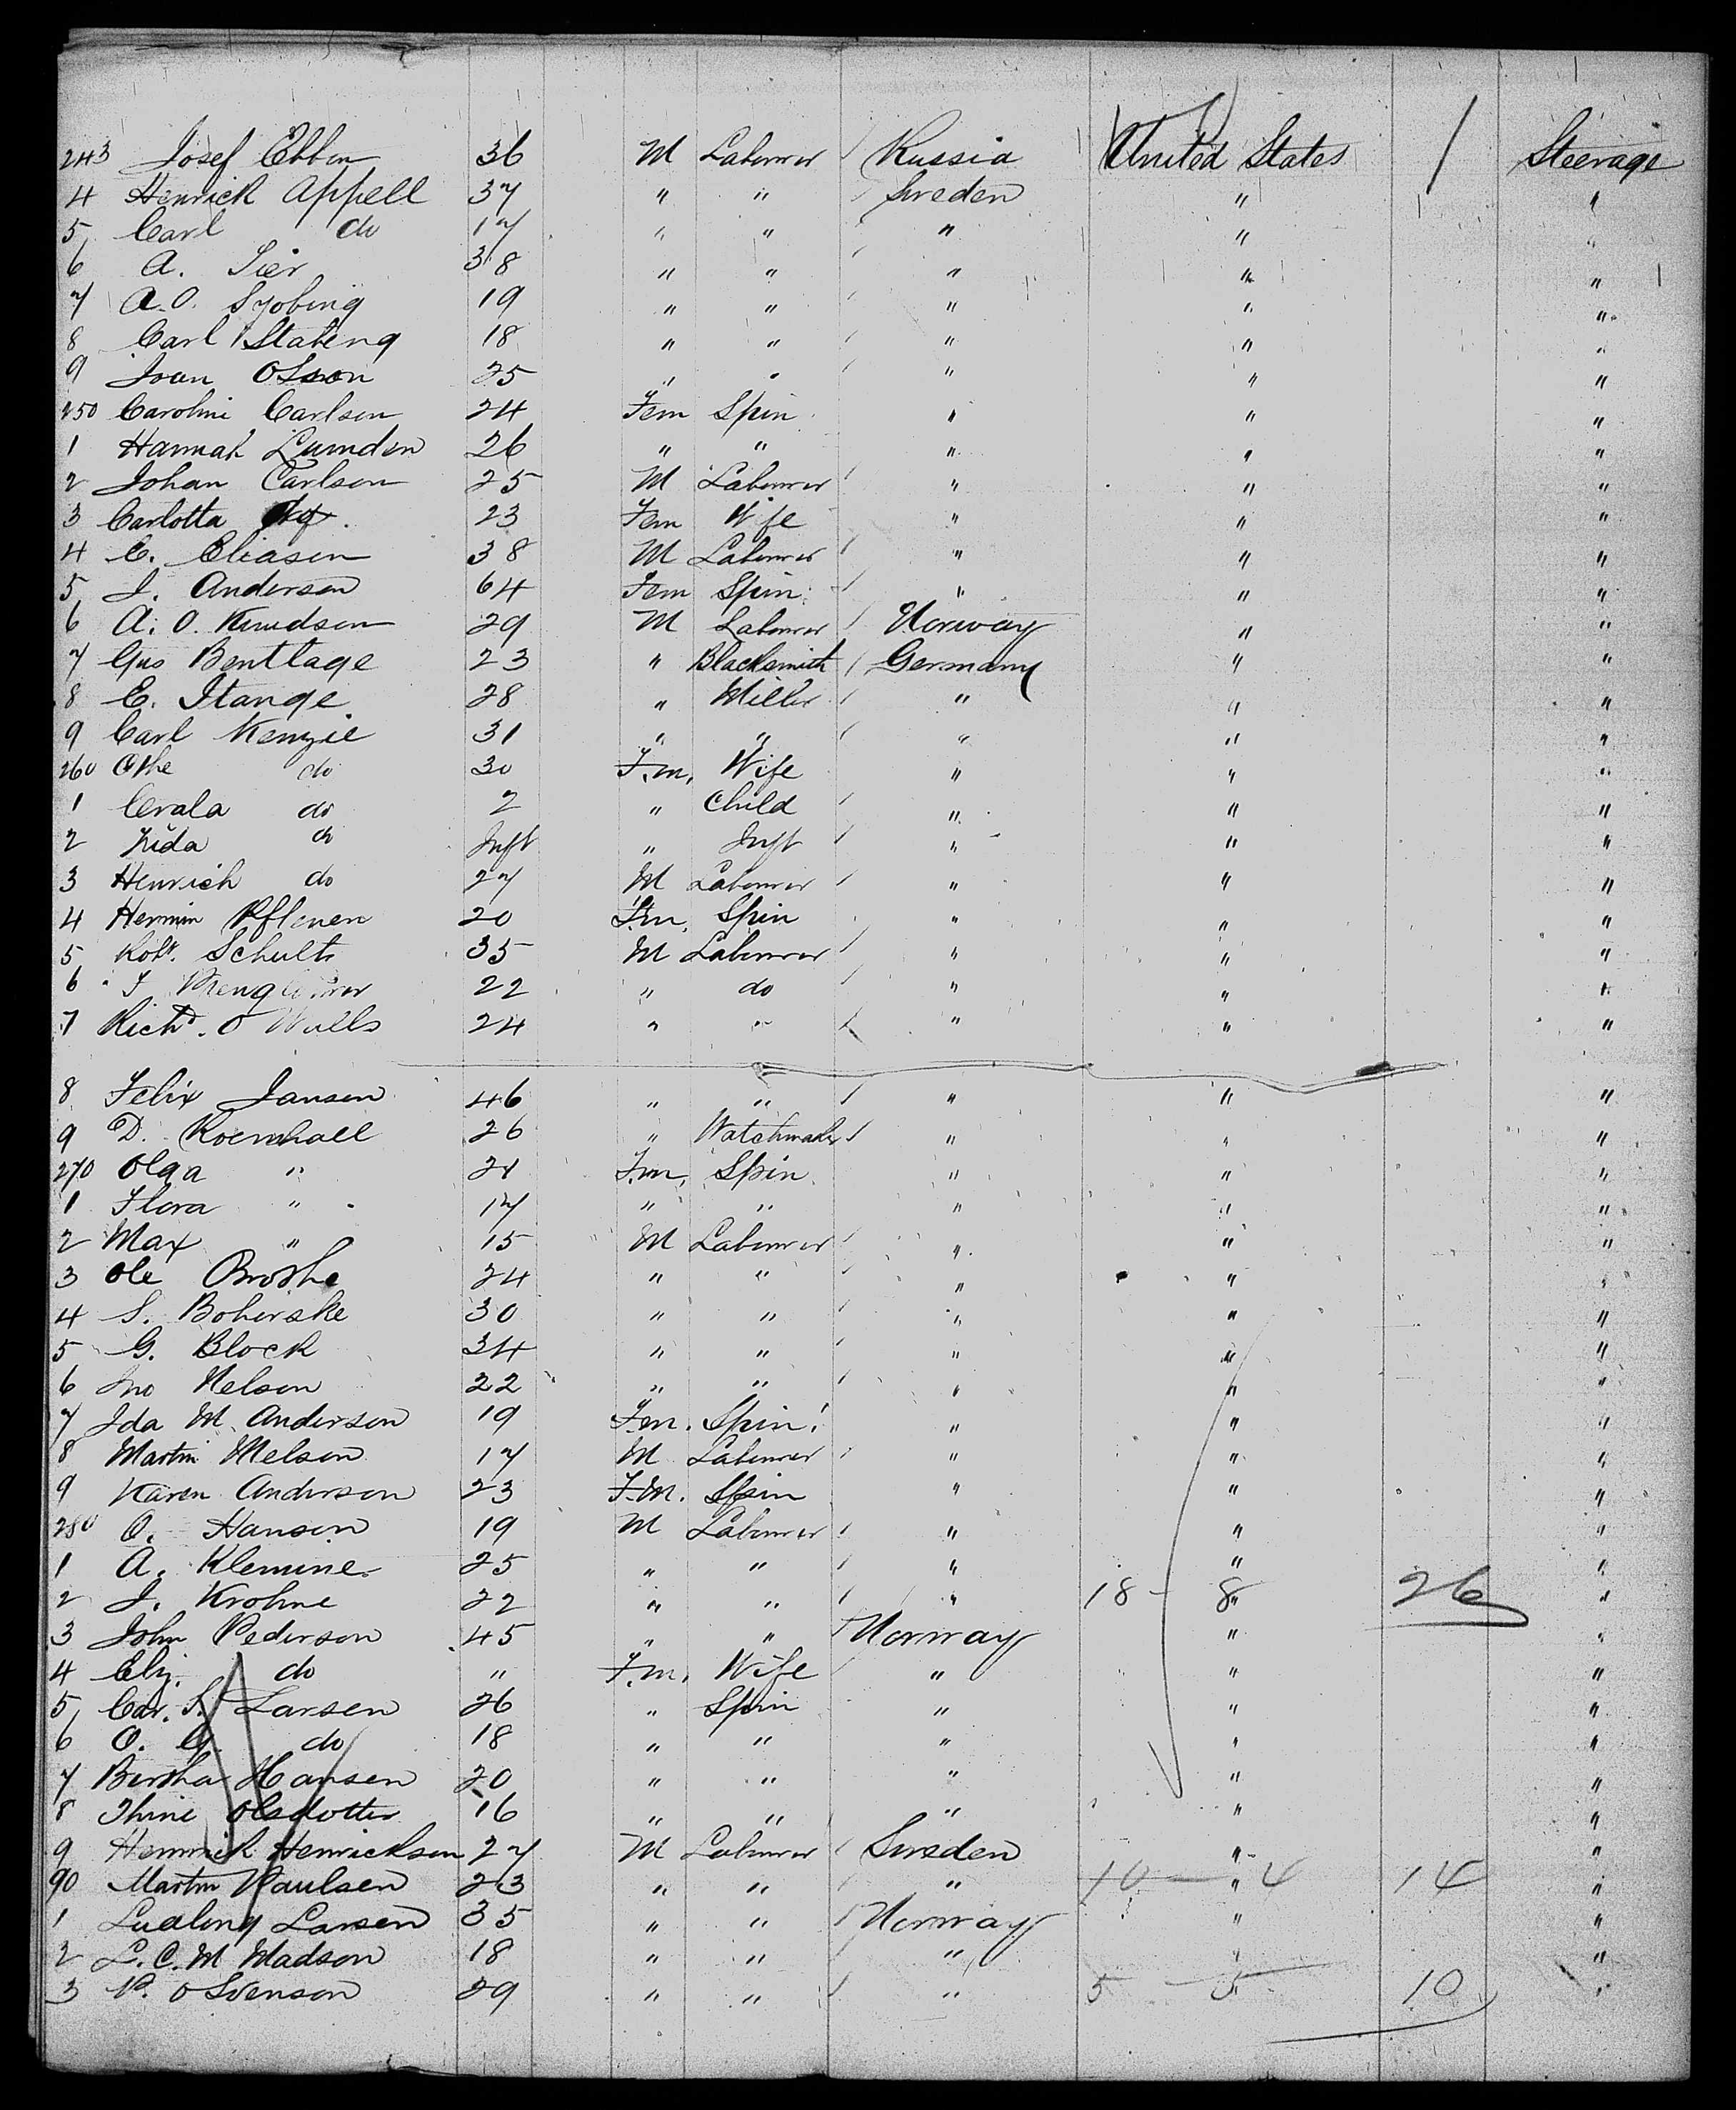 243 Josef Ebben 36 M Labourer / Russia United States / Steerage
4 Henrick Appell 37 " " Sweden " "
5 Carl do 17 " " " " "
6 A. 38 " " " " "
7 A.O. Syobing 19 " " " " "
8 Carl Stateng 18 " " " " "
9 Joan Olson 25 " " " " "
250 Carolini Carlson 24 Fem Spin " " "
1 Hannah Lumden 26 " " " " "
2 Johan Carlson 25 M Labourer " " "
3 Carlotta 23 Fem Wife " " "
4 C. Eliasen 38 M Labourer " " "
5 J. Anderson 64 Fem Spin " " "
6 A. O. Knudson 29 M Labourer Norway " "
7 Gus Benttage 23 " Blacksmith Germany " "
8 E. Stange 28 " Miller " " "
9 Carl Kenzie 31 " " " " "
260 Othe do 30 Fm. Wife " " "
1 Cerala do 2 " Child " " "
2 Lida do Inft " Inft " " "
3 Henrich do 27 M Labourer " " "
4 Hermin 20 Fm. Spin " " "
5 Robt. Schults 35 M Labourer " " "
6 22 " do " " "
7 Richd. O Walls 24 " " " " "
8 Felix Jansen 46 " " " " "
9 D. Roemhall 26 " Watchmaker " " "
270 Olga " 21 Fm. Spin " " "
1 Flora " 17 " " " " "
2 Max " 15 M Labourer " " "
3 Ole 24 " " " " "
4 S. Boherske 30 " " " " "
5 G. Block 34 " " " " "
6 Jno Nelson 22 " " " " "
7 Ida M. Anderson 19 Fm. Spin " " "
8 Martin Nelson 17 M Labourer " " "
9 Karen Anderson 23 F.M. Spin " " "
280 O. Hanson 19 M Labourer " " "
1 A. Klemine 25 " " " " "
2 J. Krohne 22 " " " 18 - 8 " 26 "
3 John Pederson 45 " " Norway " "
4 Eliz. do " Fm. Wife " " "
5 Car. S. Larsen 26 " Spin " " "
6 O. G. do 18 " " " " "
7 Bertha Hansen 20 " " " " "
8 Thine Olsdotter 16 " " " " "
9 Henrick Henrickson 27 M Labourer Sweden " "
90 Martin Paulsen 23 " " " 10 - " 4 14 "
1 Larsen 35 " " Norway " "
2 L. C. M Madson 18 " " " " "
3 P. O Svenson 29 " " " 5 - 5 10 "